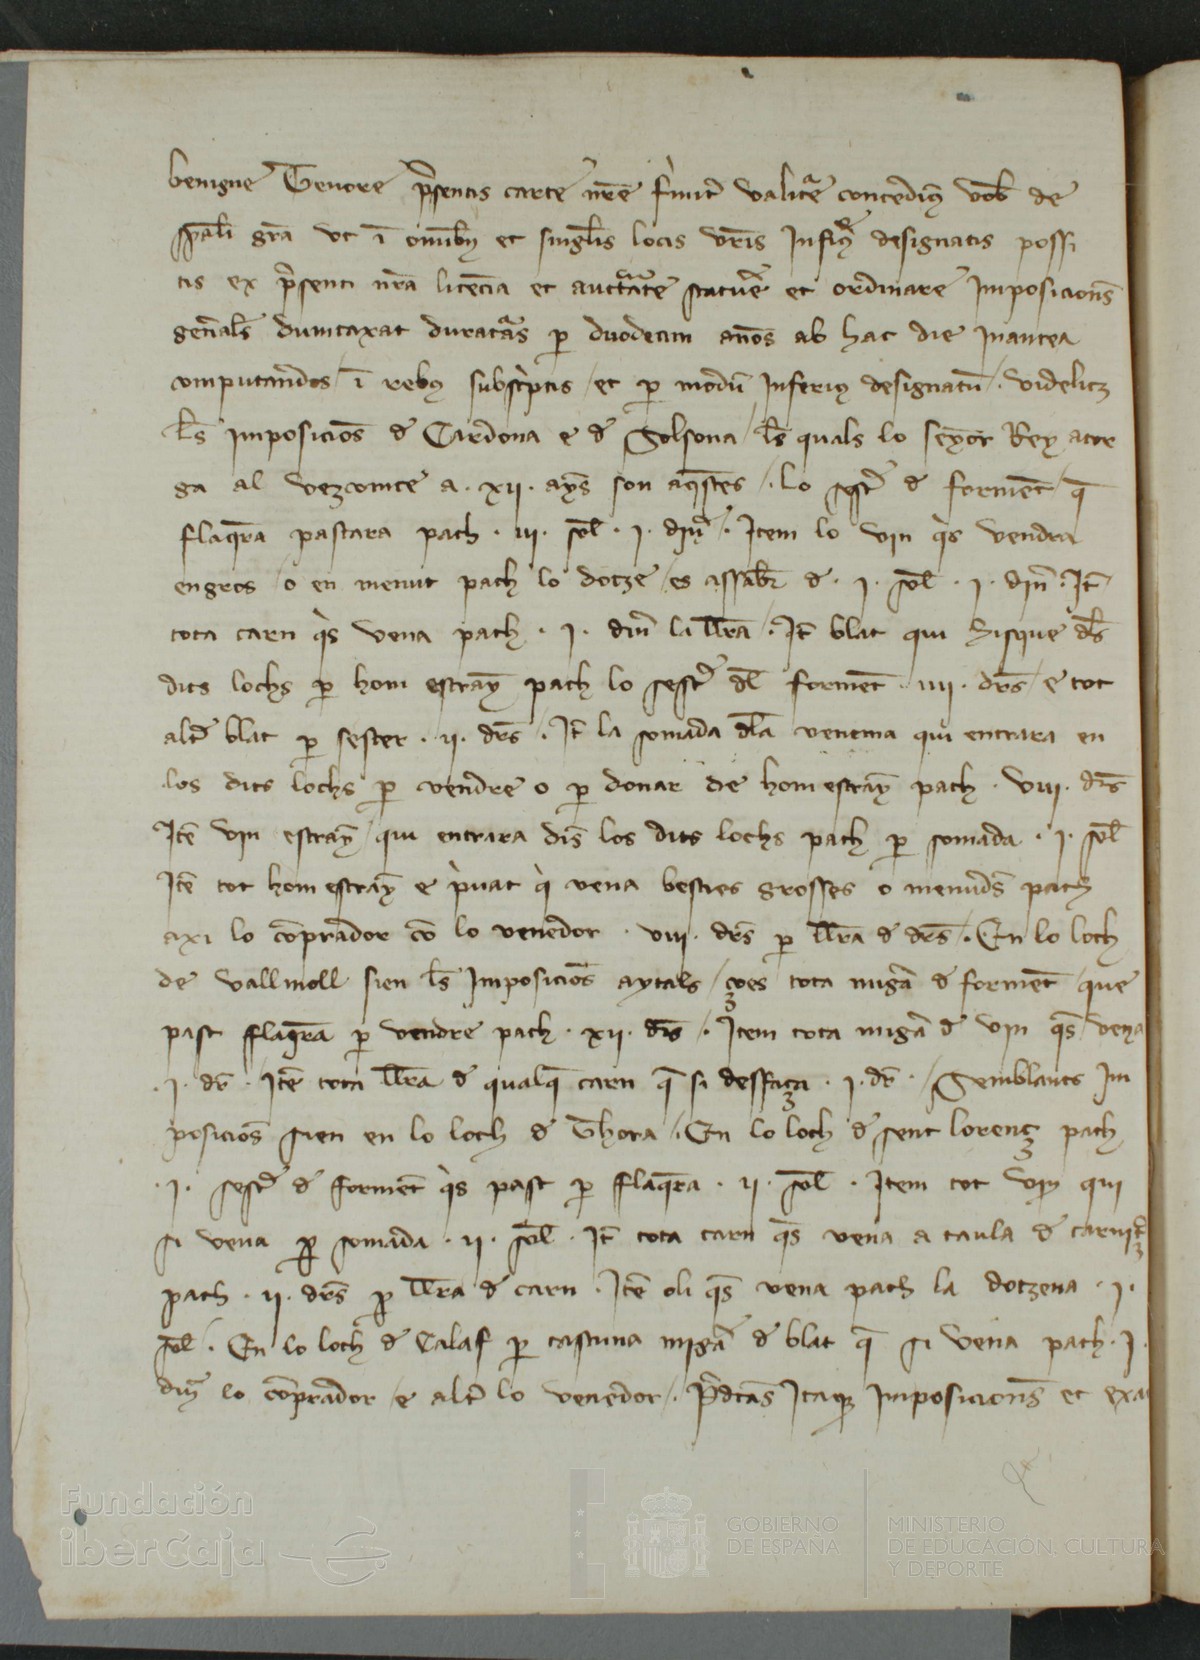 benigne Tenore p̄sentis carte nr̄e firmit̄ valitur̄ concedim9 vob̄ de
sp̄ali gr̄a vt ī omnib9 et singl̄is locis vr̄is Infi9 designatis possi
tis ex p̄senti nr̄a licēcia et auctt̄ate statuē et ordinare Imposicion̄s
gen̄als̄ dumtaxat duratur̄as p̄ duodecim anōs ab hac die Inantea
conputandos / ī reb9 subsc̄ptis / et p̄ modū Inferi9 designatū / . videlicꝫ
les̄ imposiciōs d̄ Cardona e d̄ Solsona / les̄ quals lo seȳor Rey ator
ga al vezcomte a . xii . ayns̄ son aq̄stes / . lo sest̄ d̄ formēt / q̄
flaq̄ra pastara pach . iii . sol̄ . i . din̄ / . Item lo vin q̄s vendra
engros / o en menut pach lo dotze / es assab̄ d̄ . i . sol̄ . i . din̄ . It̄
tota carn q̄s vena pach . i . din̄ la ll̄ra / . It̄ blat qui hisque dl̄s
dits lochs p̄ hom estray̅ pach lo sest̄ dl̄ formēt . iiii . drs̄ / e tot
alt̄ blat p̄ sester . ii . drs̄ / . It̄ la somada dl̄a venema qui entrara en
los dits lochs p̄ vendre o p̄ donar de hom estray̅ pach . viii . drs̄
Itē vin estray̅ / qui entrara dīs los dits lochs pach p̄ somada . i . sol̄
Itē tot hom estray̅ e p̄uat q̄ vena besties grosses o menuds̄ pach
axi lo cōprador cō lo venedor . viii . drs̄ p̄ ll̄ra d̄ drs̄ / . En lo loch
de vallmoll sien les̄ Imposiciōs aytals / ços tota migā d̄ formēt / que
past flaq̄ra p̄ vendre pach . xii . drs̄ / . Item tota migā d̄ vin q̄s vena
. i . dr̄ . Itē tota ll̄ra d̄ qualq̄ carn q̄ si desfaça . i . dr̄ . / Semblants Im
posiciōs sien en lo loch d̄ Thora / . En lo loch d̄ sent lorenç pach
. i . sest̄ d̄ formēt q̄s past p̄ flaq̄ra . ii . sol̄ . Item tot vin qui
si vena p̄ somada . ii . sol̄ . It̄ tota carn q̄s vena a taula d̄ carniç̄
pach . ii . drs̄ p̄ ll̄ra d̄ carn . Itē oli q̄s vena pach la dotzena . i .
sol̄ / . En lo loch d̄ Calaf p̄ cascuna migā d̄ blat q̄ si vena pach . i .
din̄ lo cōprador / e alt̄ lo venedor / . P̄dcās Itaq9 Imposicion̄s et exa
Fundación
iberCaja
GOBIERNO
DE ESPAÑA
MINISTERIO
DE EDUCACIÓN, CULTURA
Y DEPORTE